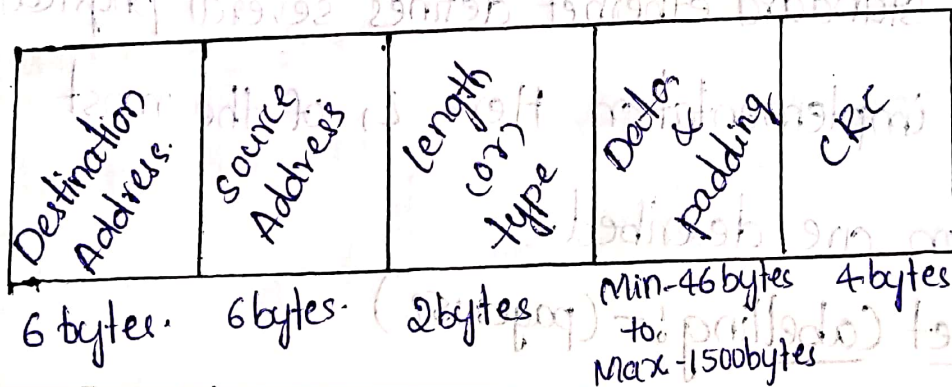 Destination
Address.
Source
Address
Length
(or)
type
Data
&
padding
CRC
6 bytes.
6 bytes.
2 bytes
Min-46 bytes
to
Max-1500 bytes
4 bytes